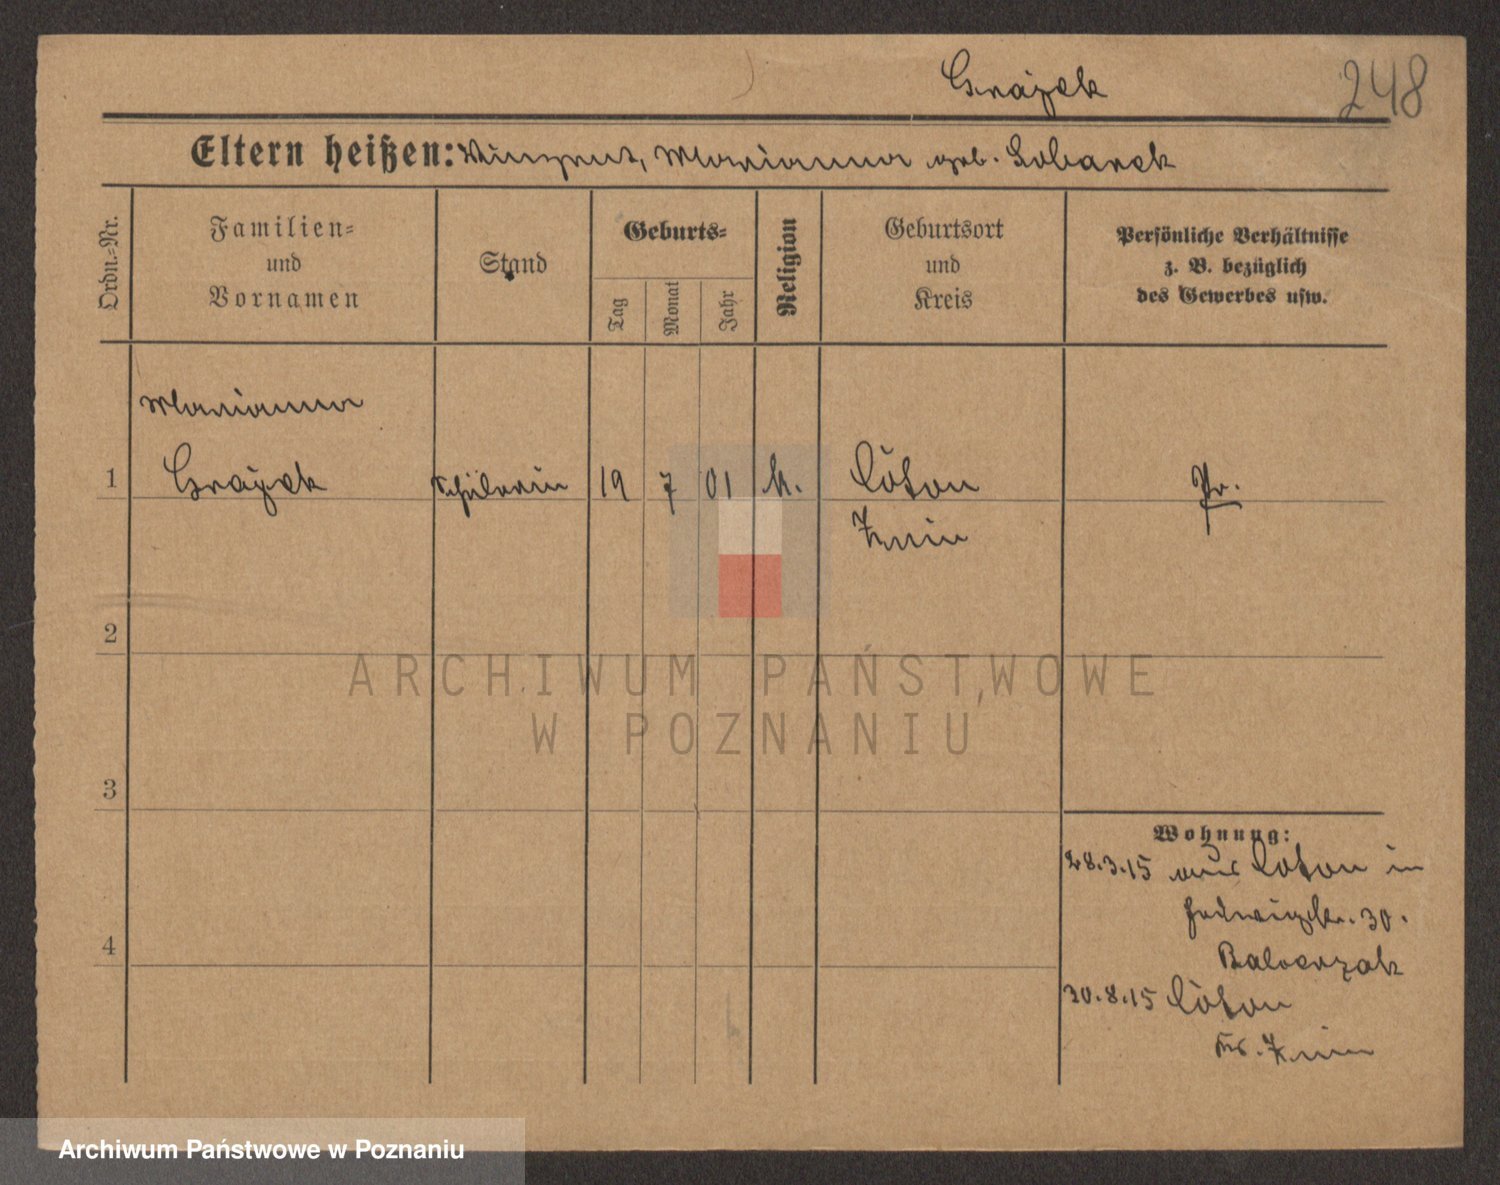 Grajek
248
Eltern heißen: Vinzent, Marianna geb. Sobarek
Ordn.-Nr.
Familien-
und
Vornamen
Stand
Geburts-
Tag
Monat
Jahr
Religion
Geburtsort
und
Kreis
Persönliche Verhältnisse
z. B. bezüglich
des Gewerbes usw.
Marianna
1 Grajek Schülerin 19 7 01 k. Pr.
Znin
2
3
4
Wohnung:
28.3.15 aus in
Hedwigstr. 30.
Balcerzak
30.8.15
Kr. Znin
ARCHIWUM PAŃSTWOWE
W POZNANIU
Archiwum Państwowe w Poznaniu